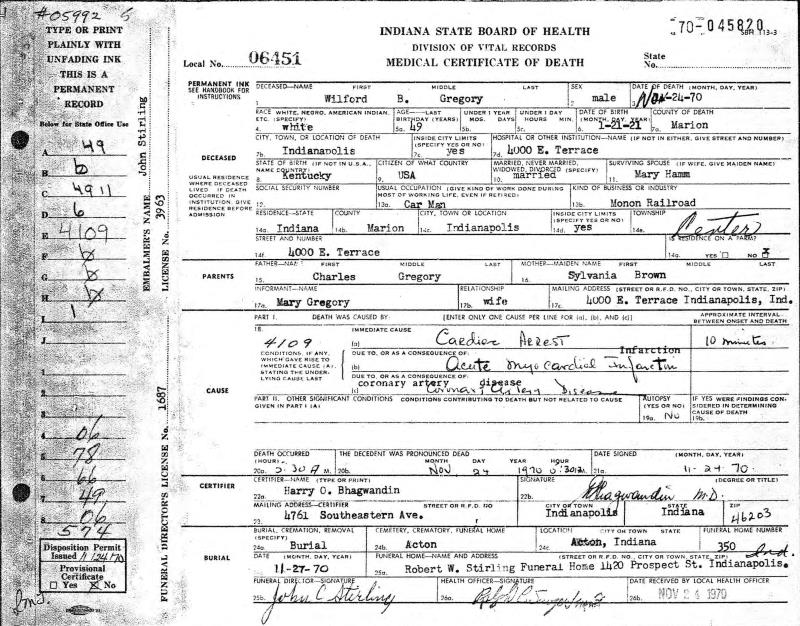 #05992 5
TYPE OR PRINT
PLAINLY WITH
UNFADING INK
THIS IS A
PERMANENT
RECORD
Below for State Office Use
A 49
B 6
C 4911
D 6
E 4109
F 6
G 6
H 6
I 1
4 06
5 78
6 66
7 49
8 06
574
Disposition Permit
Issued 11/24/70
Provisional
Certificate
Yes X No
EMBALMER'S NAME John Stirling
LICENSE No. 3963
FUNERAL DIRECTOR'S LICENSE No. 1687
INDIANA STATE BOARD OF HEALTH
DIVISION OF VITAL RECORDS
MEDICAL CERTIFICATE OF DEATH
70-045820
SBH 113-3
Local No. 06451
State
No.
PERMANENT INK
SEE HANDBOOK FOR
INSTRUCTIONS
DECEASED—NAME FIRST MIDDLE LAST SEX DATE OF DEATH (MONTH, DAY, YEAR)
1. Wilford B. Gregory 2. male 3. Nov-24-70
RACE WHITE, NEGRO, AMERICAN INDIAN, ETC. (SPECIFY) AGE—LAST BIRTHDAY (YEARS) UNDER 1 YEAR MOS. DAYS UNDER 1 DAY HOURS MIN. DATE OF BIRTH (MONTH, DAY, YEAR) COUNTY OF DEATH
4. white 5a. 49 5b. 5c. 6. 1-21-21 7a. Marion
DECEASED
CITY, TOWN, OR LOCATION OF DEATH INSIDE CITY LIMITS (SPECIFY YES OR NO) HOSPITAL OR OTHER INSTITUTION—NAME (IF NOT IN EITHER, GIVE STREET AND NUMBER)
7b. Indianapolis 7c. yes 7d. 4000 E. Terrace
USUAL RESIDENCE
WHERE DECEASED
LIVED. IF DEATH
OCCURRED IN
INSTITUTION, GIVE
RESIDENCE BEFORE
ADMISSION
STATE OF BIRTH (IF NOT IN U.S.A., NAME COUNTRY) CITIZEN OF WHAT COUNTRY MARRIED, NEVER MARRIED, WIDOWED, DIVORCED (SPECIFY) SURVIVING SPOUSE (IF WIFE, GIVE MAIDEN NAME)
8. Kentucky 9. USA 10. married 11. Mary Hamm
SOCIAL SECURITY NUMBER USUAL OCCUPATION (GIVE KIND OF WORK DONE DURING MOST OF WORKING LIFE, EVEN IF RETIRED) KIND OF BUSINESS OR INDUSTRY
12. 13a. Car Man 13b. Monon Railroad
RESIDENCE—STATE COUNTY CITY, TOWN OR LOCATION INSIDE CITY LIMITS (SPECIFY YES OR NO) TOWNSHIP
14a. Indiana 14b. Marion 14c. Indianapolis 14d. yes 14e. Center
STREET AND NUMBER IS RESIDENCE ON A FARM?
14f. 4000 E. Terrace 14g. YES NO X
PARENTS
FATHER—NAME FIRST MIDDLE LAST MOTHER—MAIDEN NAME FIRST MIDDLE LAST
15. Charles Gregory 16. Sylvania Brown
INFORMANT—NAME RELATIONSHIP MAILING ADDRESS (STREET OR R.F.D. NO., CITY OR TOWN, STATE, ZIP)
17a. Mary Gregory 17b. wife 17c. 4000 E. Terrace Indianapolis, Ind.
PART I. DEATH WAS CAUSED BY: [ENTER ONLY ONE CAUSE PER LINE FOR (a), (b), AND (c)] APPROXIMATE INTERVAL BETWEEN ONSET AND DEATH
CAUSE
18. IMMEDIATE CAUSE
4109 (a) Cardiac Arrest 10 minutes
CONDITIONS, IF ANY,
WHICH GAVE RISE TO
IMMEDIATE CAUSE (A),
STATING THE UNDER-
LYING CAUSE LAST
DUE TO, OR AS A CONSEQUENCE OF: Infarction
(b) Acute myocardial Infarction
DUE TO, OR AS A CONSEQUENCE OF:
coronary artery disease
(c) Coronary artery Disease
PART II. OTHER SIGNIFICANT CONDITIONS CONDITIONS CONTRIBUTING TO DEATH BUT NOT RELATED TO CAUSE GIVEN IN PART I (A) AUTOPSY (YES OR NO) IF YES WERE FINDINGS CONSIDERED IN DETERMINING CAUSE OF DEATH
19a. No 19b.
DEATH OCCURRED (HOUR) THE DECEDENT WAS PRONOUNCED DEAD MONTH DAY YEAR HOUR DATE SIGNED (MONTH, DAY, YEAR)
20a. 5:30 A M. 20b. Nov 24 1970 21a. 11-24-70.
CERTIFIER
CERTIFIER—NAME (TYPE OR PRINT) SIGNATURE (DEGREE OR TITLE)
22a. Harry O. Bhagwandin 22b. Bhagwandin M.D.
MAILING ADDRESS—CERTIFIER STREET OR R.F.D. NO CITY OR TOWN STATE ZIP
23. 4761 Southeastern Ave. Indianapolis Indiana 46203
BURIAL
BURIAL, CREMATION, REMOVAL (SPECIFY) CEMETERY, CREMATORY, FUNERAL HOME LOCATION CITY OR TOWN STATE FUNERAL HOME NUMBER
24a. Burial 24b. Acton 24c. Acton, Indiana 350
DATE (MONTH, DAY, YEAR) FUNERAL HOME—NAME AND ADDRESS (STREET OR R.F.D. NO., CITY OR TOWN, STATE, ZIP) Ind.
11-27-70 25a. Robert W. Stirling Funeral Home 1420 Prospect St. Indianapolis.
FUNERAL DIRECTOR—SIGNATURE HEALTH OFFICER—SIGNATURE DATE RECEIVED BY LOCAL HEALTH OFFICER
25b. John C Stirling 26a. 26b. NOV 24 1970